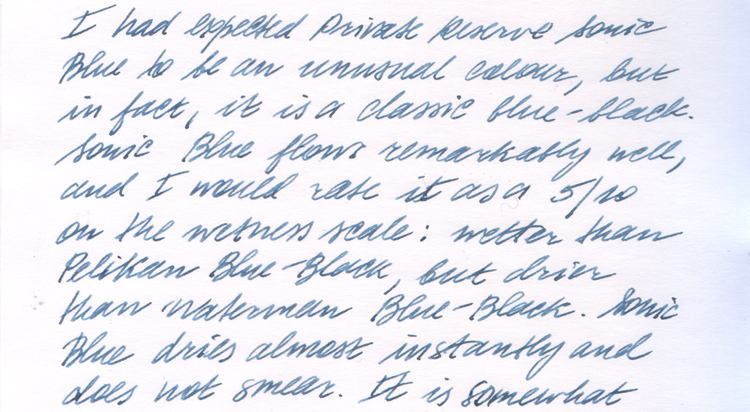 I had expected Private Reserve Sonic
Blue to be an unusual colour, but
in fact, it is a classic blue-black.
Sonic Blue flows remarkably well,
and I would rate it as a 5/10
on the wetness scale: wetter than
Pelikan Blue-Black, but drier
than Waterman Blue-Black. Sonic
Blue dries almost instantly and
does not smear. It is somewhat